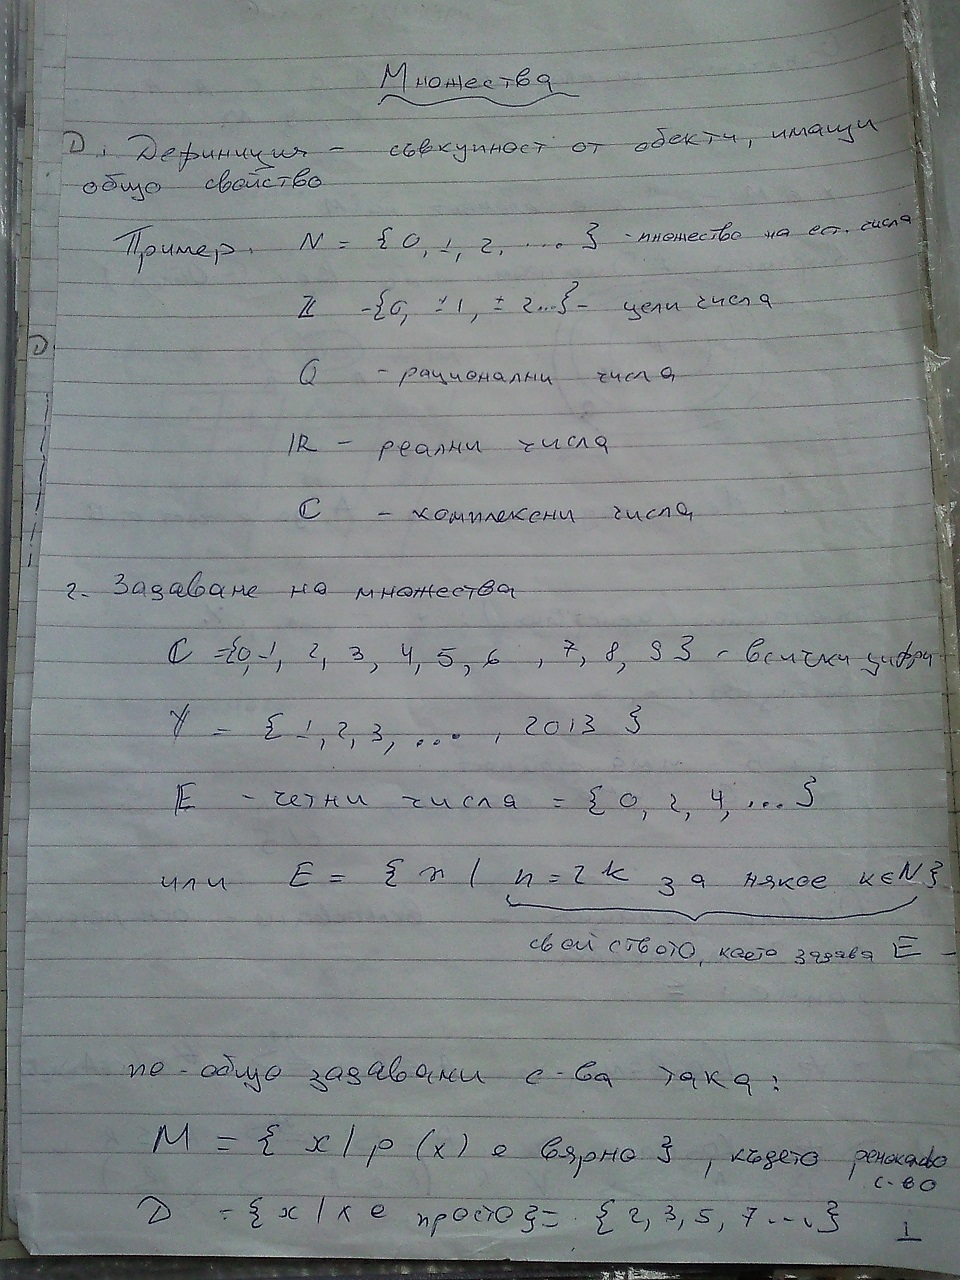 Множества
D. Дефиниция - съвкупност от обекти, имащи
общо свойство
Пример. N = { 0, 1, 2, ... } - множество на ест. числа
Z -{0, ±1, ± 2...}- цели числа
D
Q - рационални числа
IR - реални числа
C - комплексни числа
2. Задаване на множества
C ={0,1, 2, 3, 4, 5, 6, 7, 8, 9} - всички цифри
Y = { 1, 2, 3, ...., 2013 }
E - четни числа = { 0, 2, 4, ... }
или E = { n / n = 2k за някое k∈N}
свойството, което задава E -
по-общо задавани с-ва така:
M = { x / p (x) е вярно }, където
с-во
D = { x / x е просто} = { 2, 3, 5, 7 .... }
1